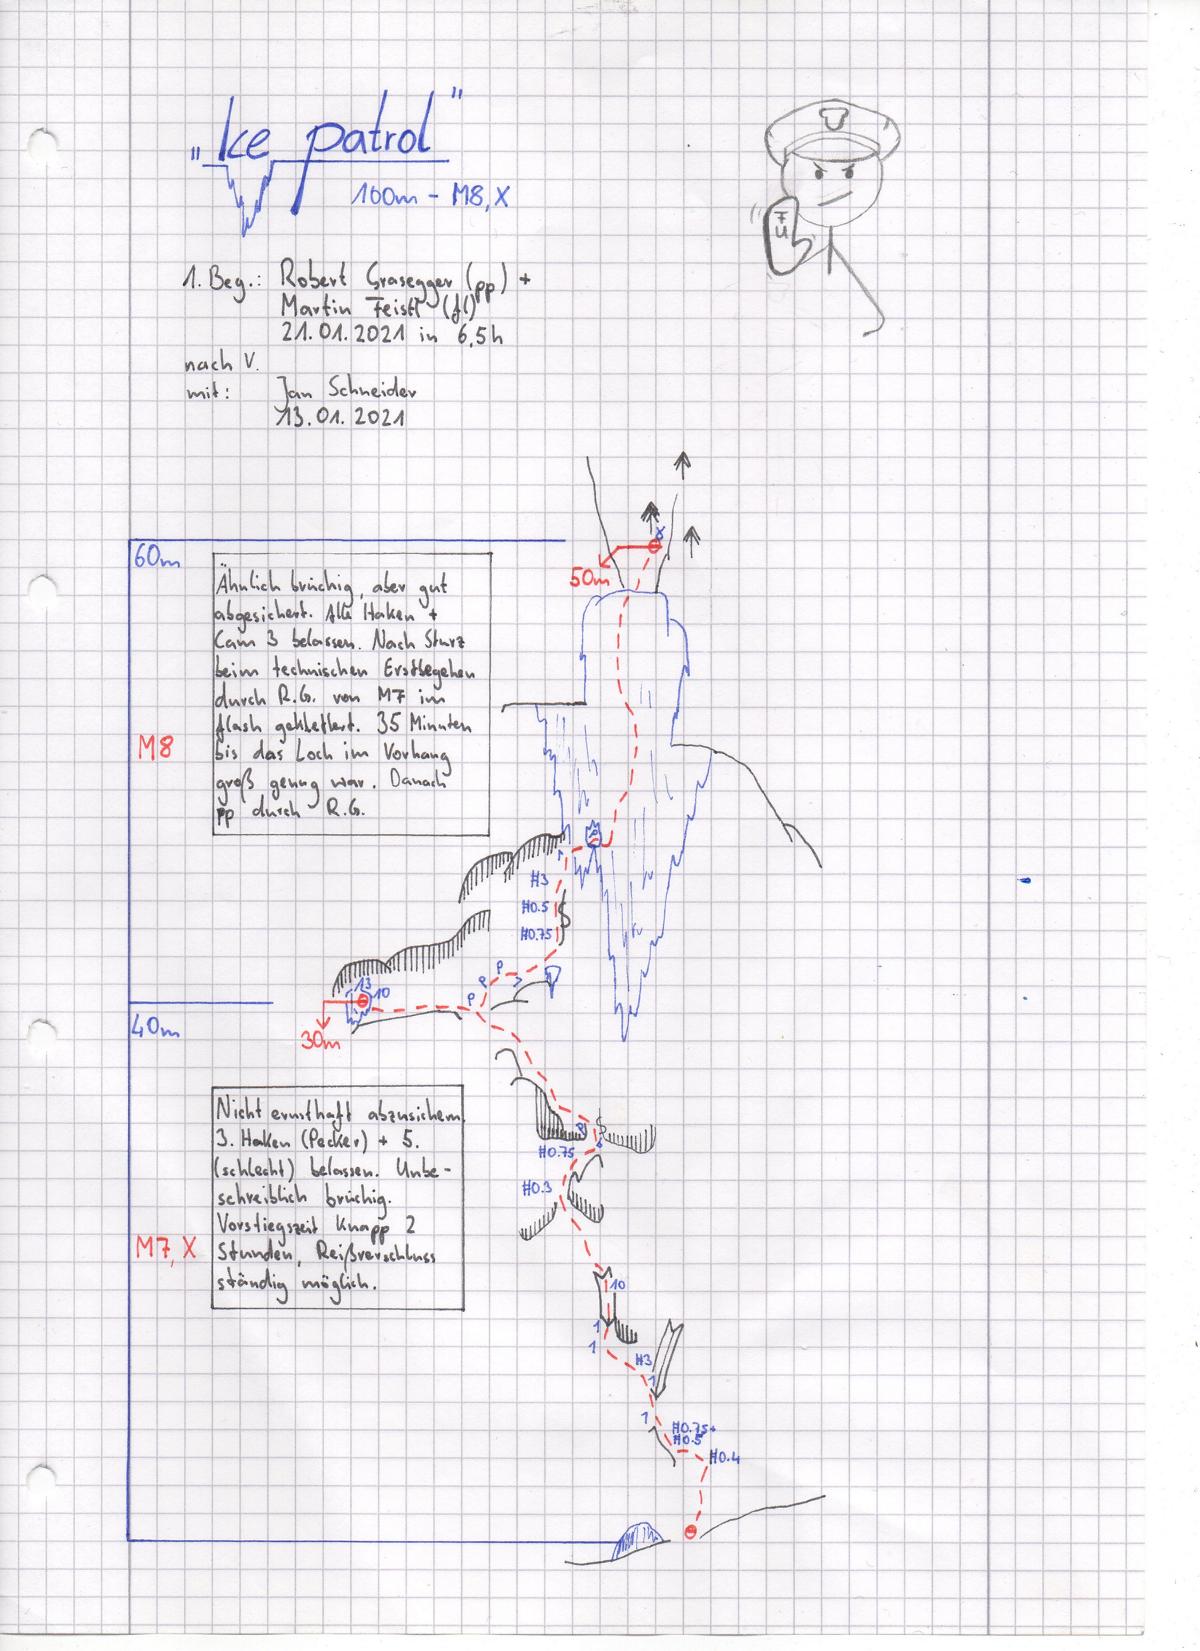 „Ice patrol"
100m - M8, X
F
U
1. Beg.: Robert Grasegger (pp) +
Martin Feistl (fl)
21.01.2021 in 6,5h
nach V.
mit: Jan Schneider
13.01.2021
60m
50m
Ähnlich brüchig, aber gut
abgesichert. Alle Haken +
Cam 3 belassen. Nach Sturz
beim technischen Erstbegehen
durch R.G. von M7 im
flash geklettert. 35 Minuten
bis das Loch im Vorhang
groß genug war. Danach
pp durch R.G.
M8
#3
#0.5
#0.75
P
P
P
13
10
40m
30m
Nicht ernsthaft abzusichern
3. Haken (Pecker) + 5.
(schlecht) belassen. Unbe-
schreiblich brüchig.
Vorstiegszeit knapp 2
Stunden, Reißverschluss
ständig möglich.
M7, X
#0.75
#0.3
10
1
1
#3
1
1
#0.75+
#0.5
#0.4